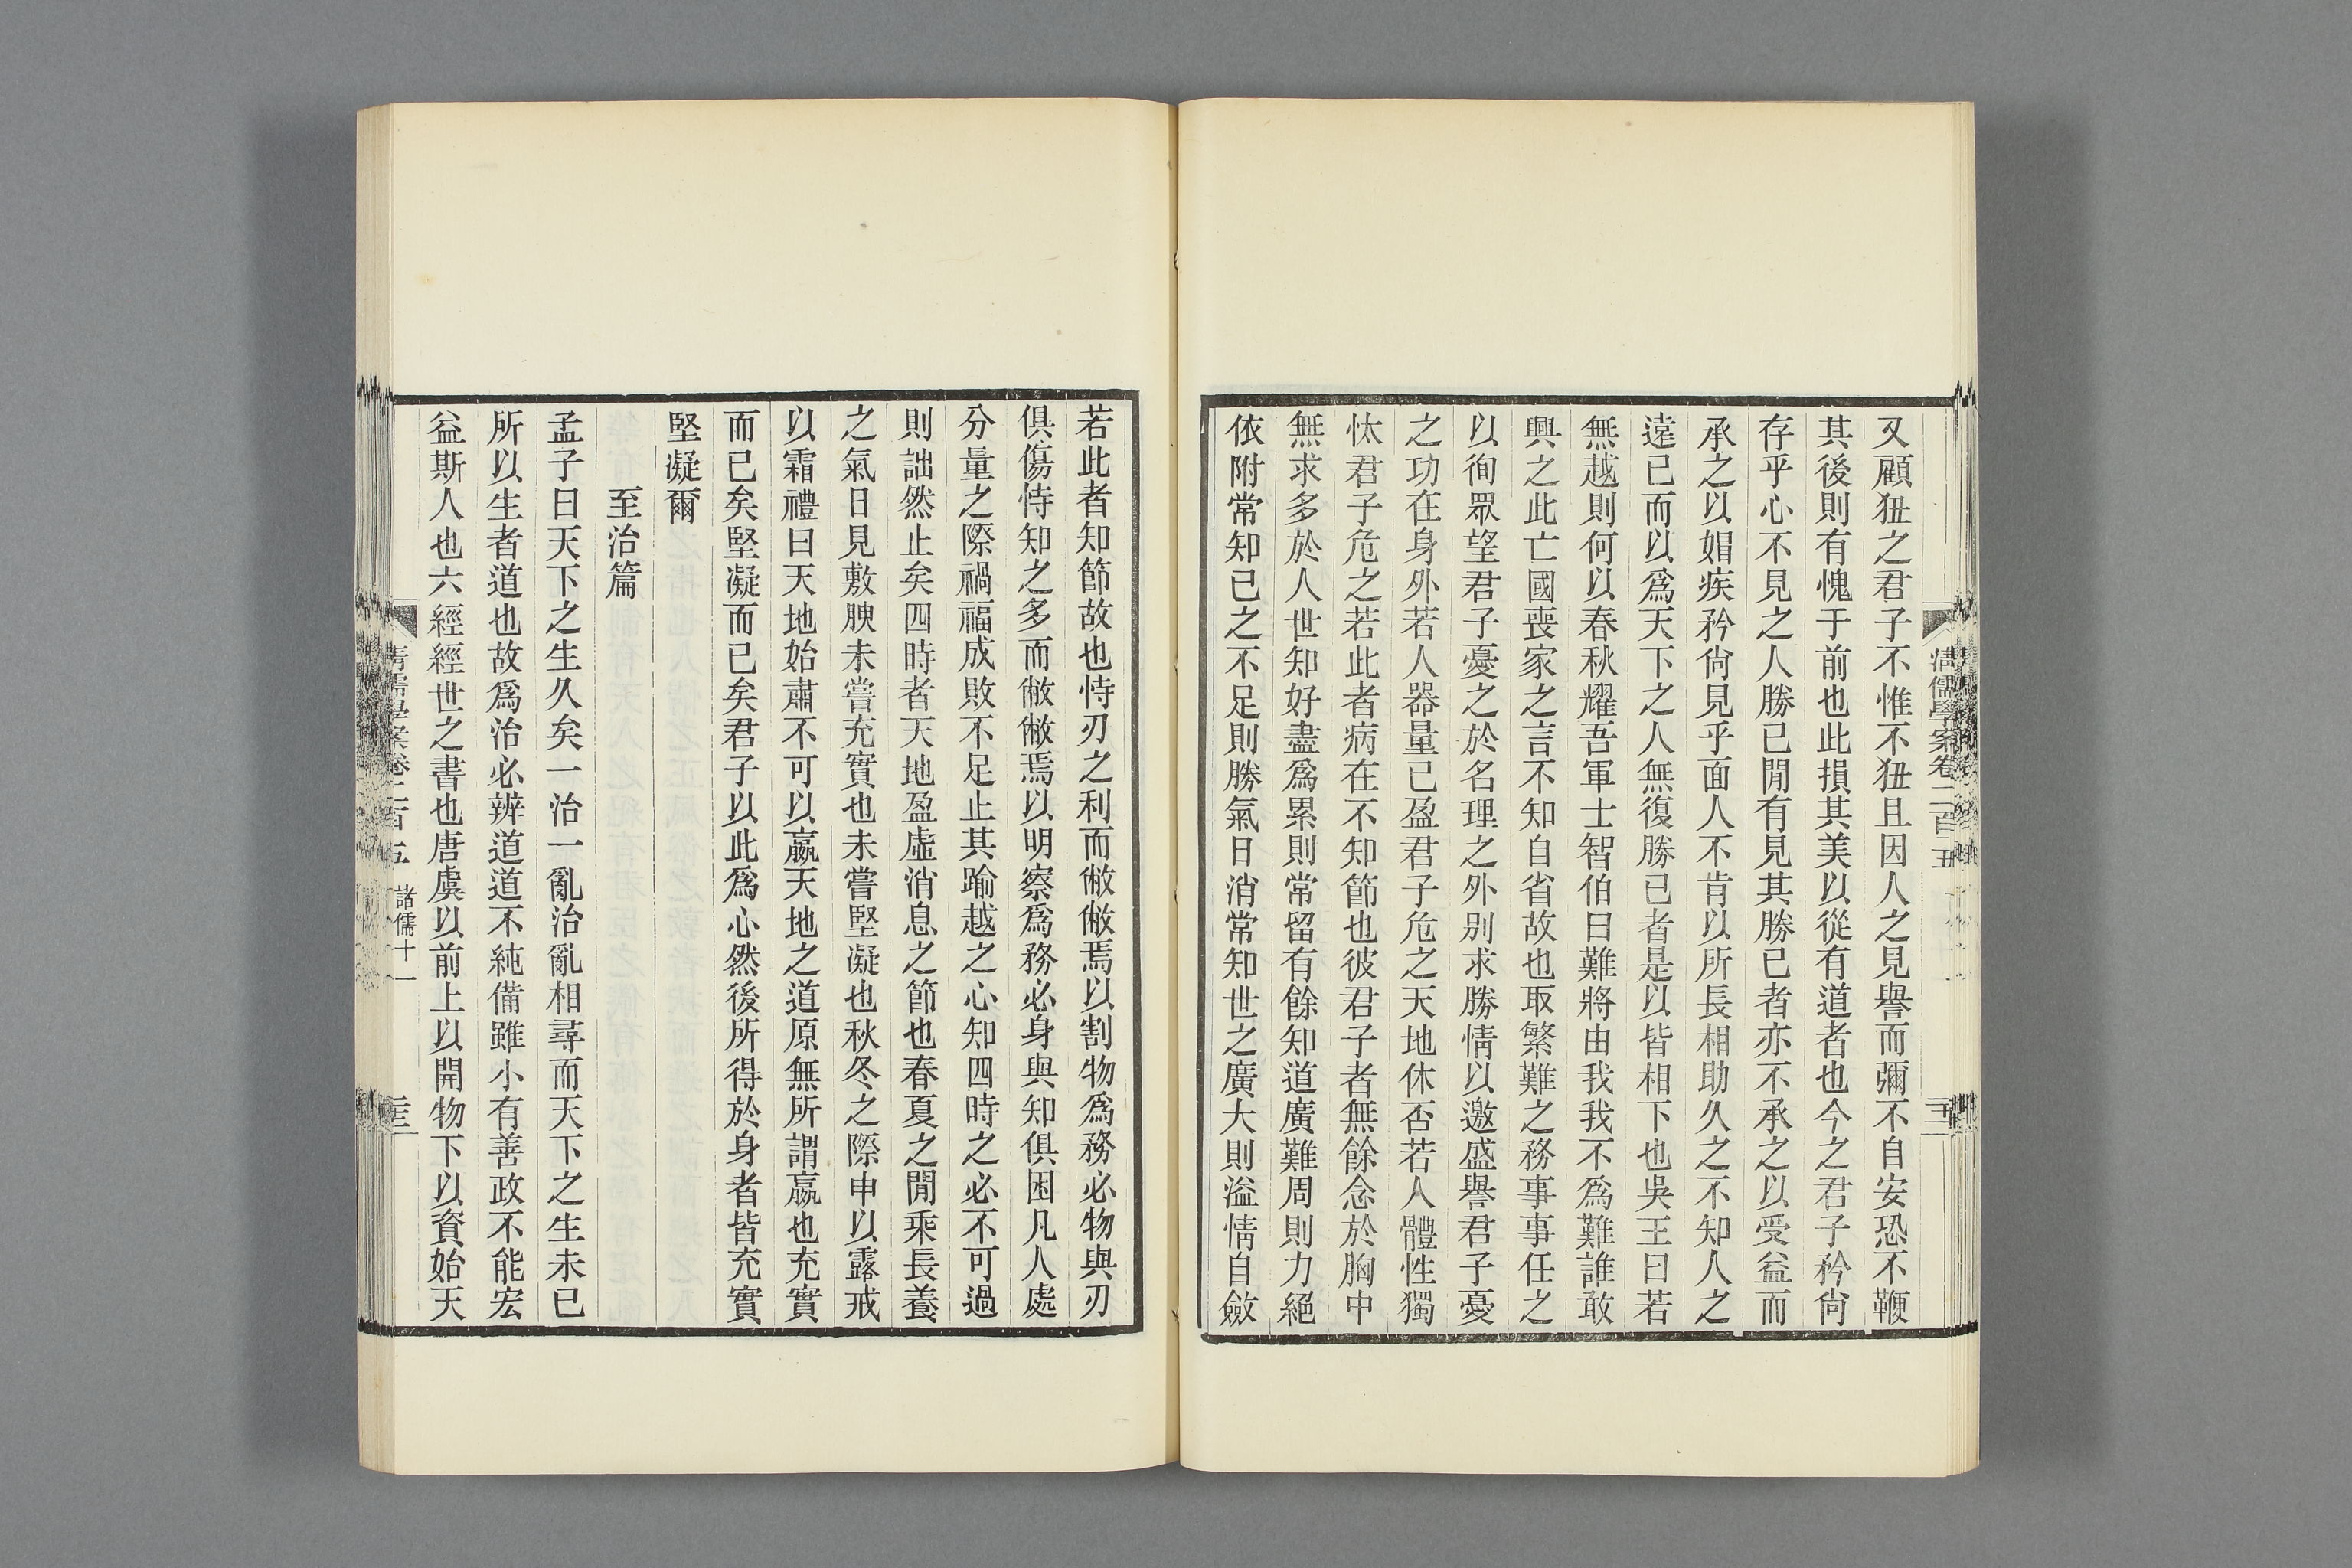 又顧狃之君子不惟不狃且因人之見譽而彌不自安恐不鞭
其後則有愧于前也此損其美以從有道者也今之君子矜尙
存乎心不見之人勝己閒有見其勝己者亦不承之以受益而
承之以媢疾矜尙見乎面人不肯以所長相助久之不知人之
遠己而以爲天下之人無復勝己者是以皆相下也吳王曰若
無越則何以春秋耀吾軍士智伯曰難將由我我不爲難誰敢
興之此亡國喪家之言不知自省故也取繁難之務事事任之
以徇眾望君子憂之於名理之外別求勝情以邀盛譽君子憂
之功在身外若人器量已盈君子危之天地休否若人體性獨
忲君子危之若此者病在不知節也彼君子者無餘念於胸中
無求多於人世知好盡爲累則常留有餘知道廣難周則力絕
依附常知己之不足則勝氣日消常知世之廣大則溢情自斂
清儒學案卷二百五
若此者知節故也恃刃之利而敝敝焉以割物爲務必物與刃
俱傷恃知之多而敝敝焉以明察爲務必身與知俱困凡人處
分量之際禍福成敗不足止其踰越之心知四時之必不可過
則詘然止矣四時者天地盈虛消息之節也春夏之閒乘長養
之氣日見敷腴未嘗充實也未嘗堅凝也秋冬之際申以露戒
以霜禮曰天地始肅不可以嬴天地之道原無所謂嬴也充實
而已矣堅凝而已矣君子以此爲心然後所得於身者皆充實
堅凝爾
至治篇
孟子曰天下之生久矣一治一亂治亂相尋而天下之生未已
所以生者道也故爲治必辨道道不純備雖小有善政不能宏
益斯人也六經經世之書也唐虞以前上以開物下以資始天
清儒學案卷二百五 諸儒十一